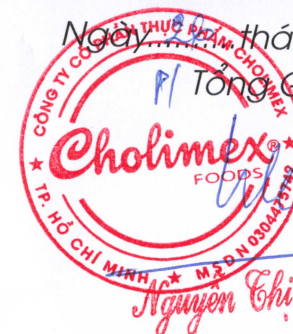 Ngày......thá
P/ Tổng G
CÔNG TY CỔ PHẦN THỰC PHẨM CHOLIMEX
Cholimex®
FOODS
★ TP. HỒ CHÍ MINH ★ M.S.D.N 0304475749
Nguyễn Thị